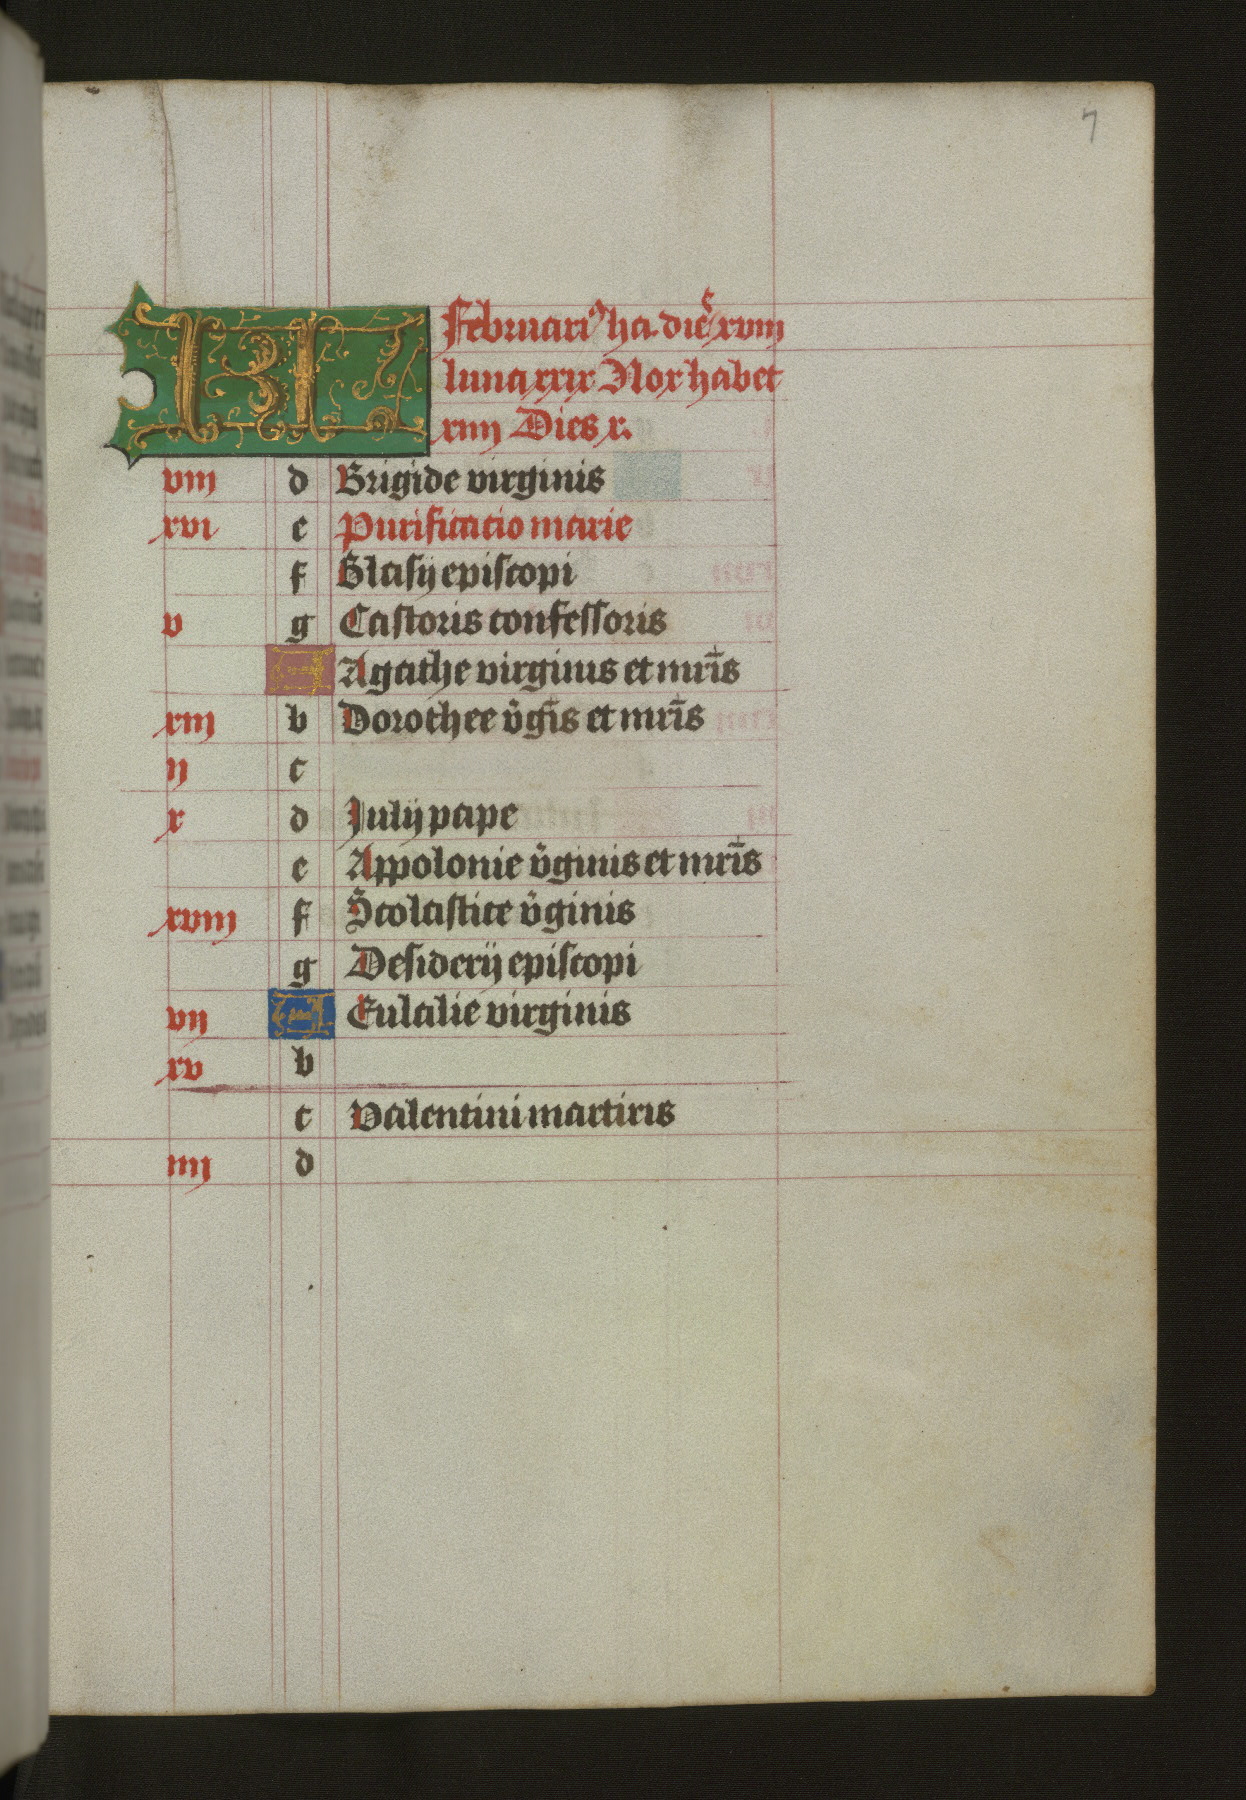 7
KL Februariꝰ ha. dieˢ xxviii
luna xxix Nox habet
xiiij Dies x.
viii d Brigide virginis
xvi e Purificatio marie
f Blasij episcopi
v g Castoris confessoris
A Agathe virginis et mr̄is
xiij b Dorothee v̄gīs et mr̄is
ij c
x d Julij pape
e Appolonie v̄ginis et mr̄is
xviij f Scolastice v̄ginis
g Desiderij episcopi
vij A Eulalie virginis
xv b
c Valentini martiris
iiij d